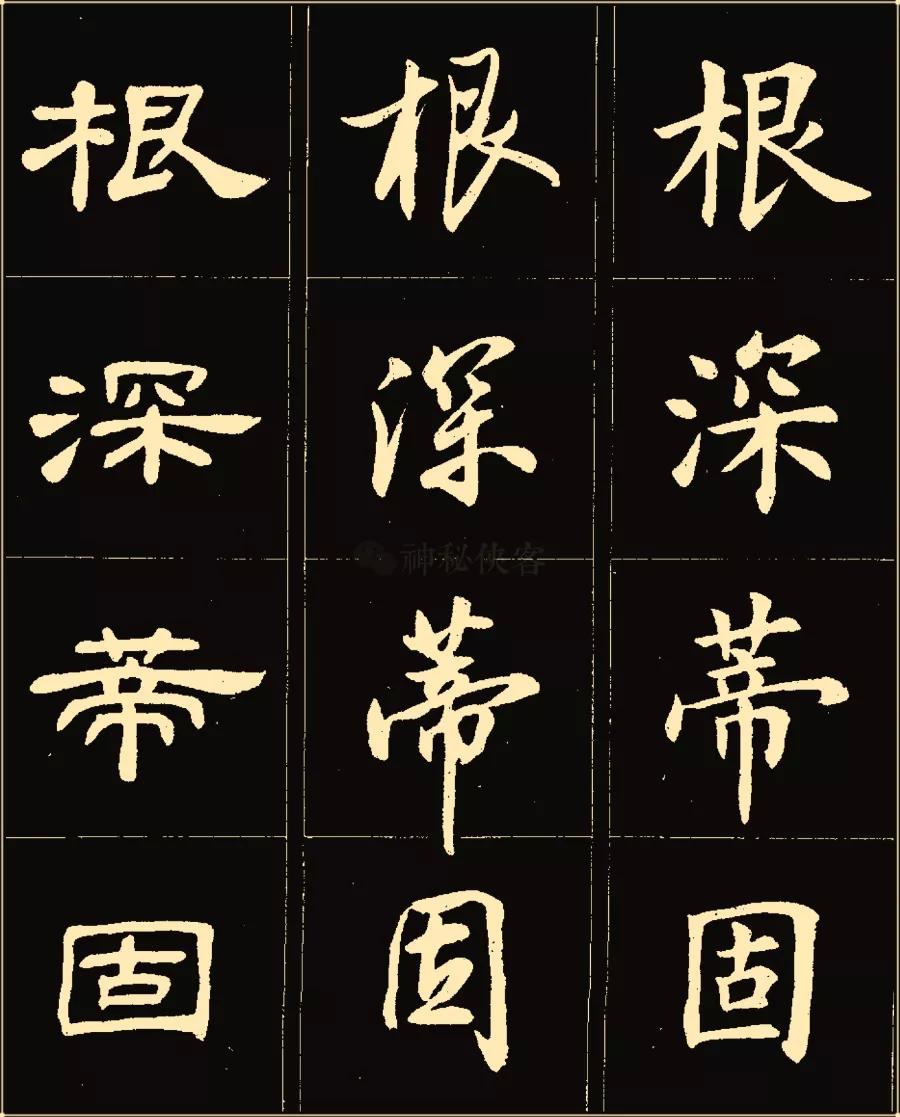 根深蒂固
根深蒂固
根深蒂固
神秘侠客